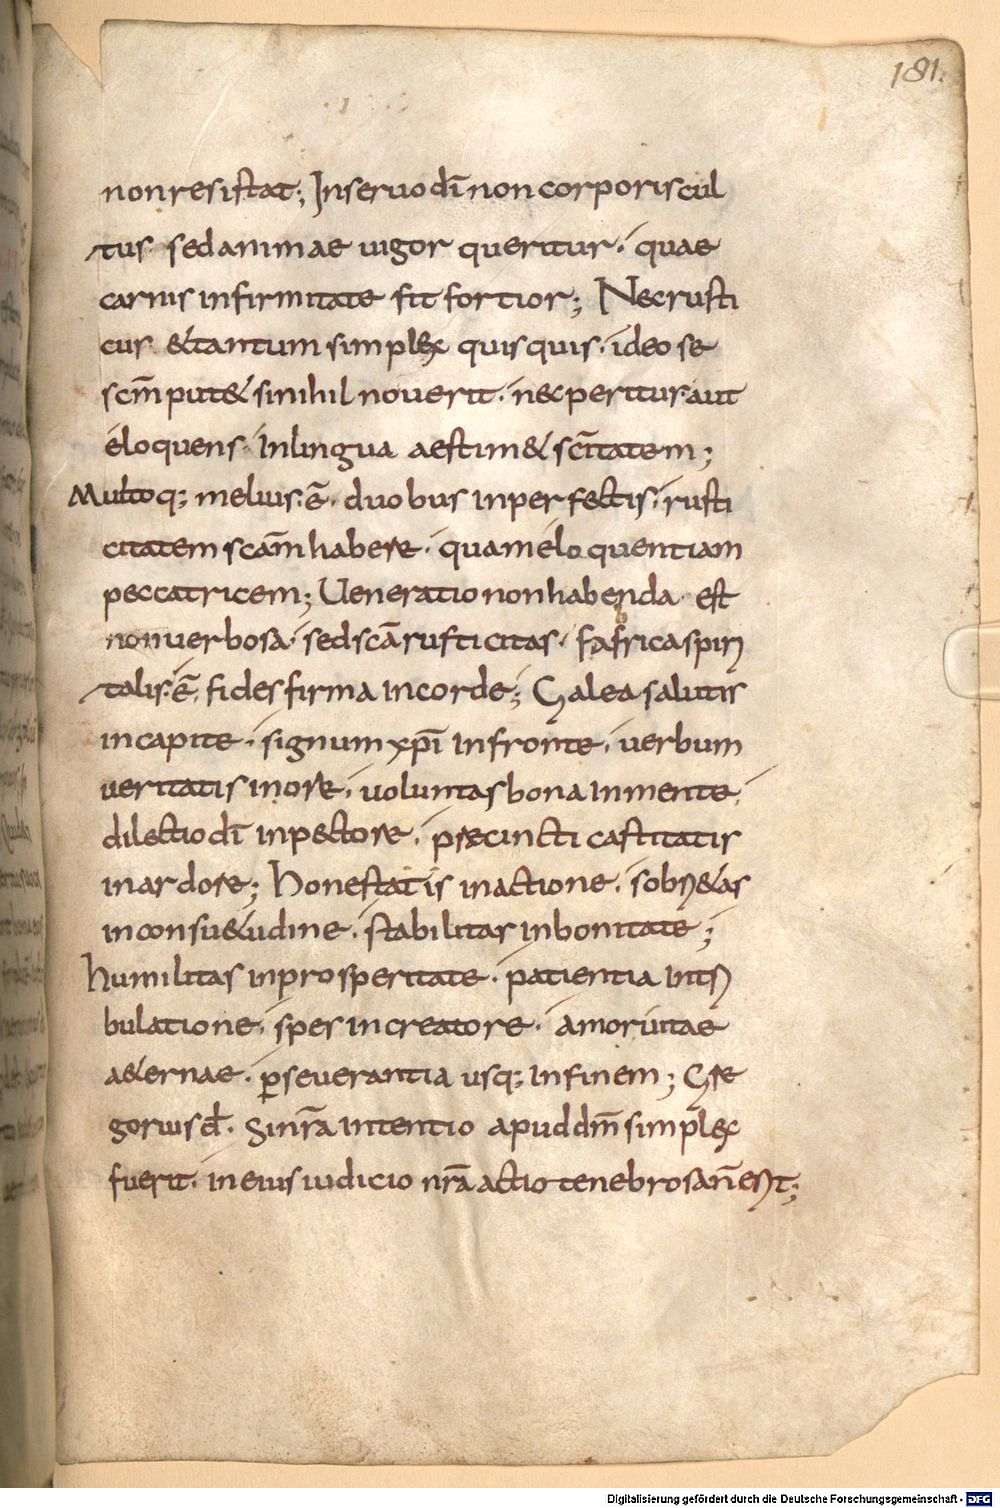 181.
non resistat; In seruo dī non corporis cul
tus sed animae uigor queritur· quae
carnis infirmitate fit fortior; Nec rusti
cus &tantum simplex quisquis· ideo se
scm̄ put& si nihil nouerit· nec peritur aut
eloquens· in lingua aestim& scītatem;
Multoq; melius·ē· duobus inperfectis· rusti
citatem scām habere· quam eloquentiam
peccatricem; Ueneratio non habenda est
non uerbosa· sed scā rusticitas· fabrica spiri
talis·ē· fides firma in corde; Galea salutis
in capite· signum xpī in fronte· uerbum
ueritatis in ore· uoluntas bona in mente·
dilectio dī in pectore· precincti castitatis
in ardore; honestatis in actione· sobri&as
in consu&udine· stabilitas in bonitate;
humilitas in prosperitate· patientia in tri
bulatione· spes in creatore· amor uitae
a&ernae· p̄seuerantia usq; in finem; Gre
gorius đ· Si nr̄a intentio apud dm̄ simplex
fuerit· in eius iudicio nr̄a actio tenebrosa n̄ erit;
Digitalisierung gefördert durch die Deutsche Forschungsgemeinschaft - DFG